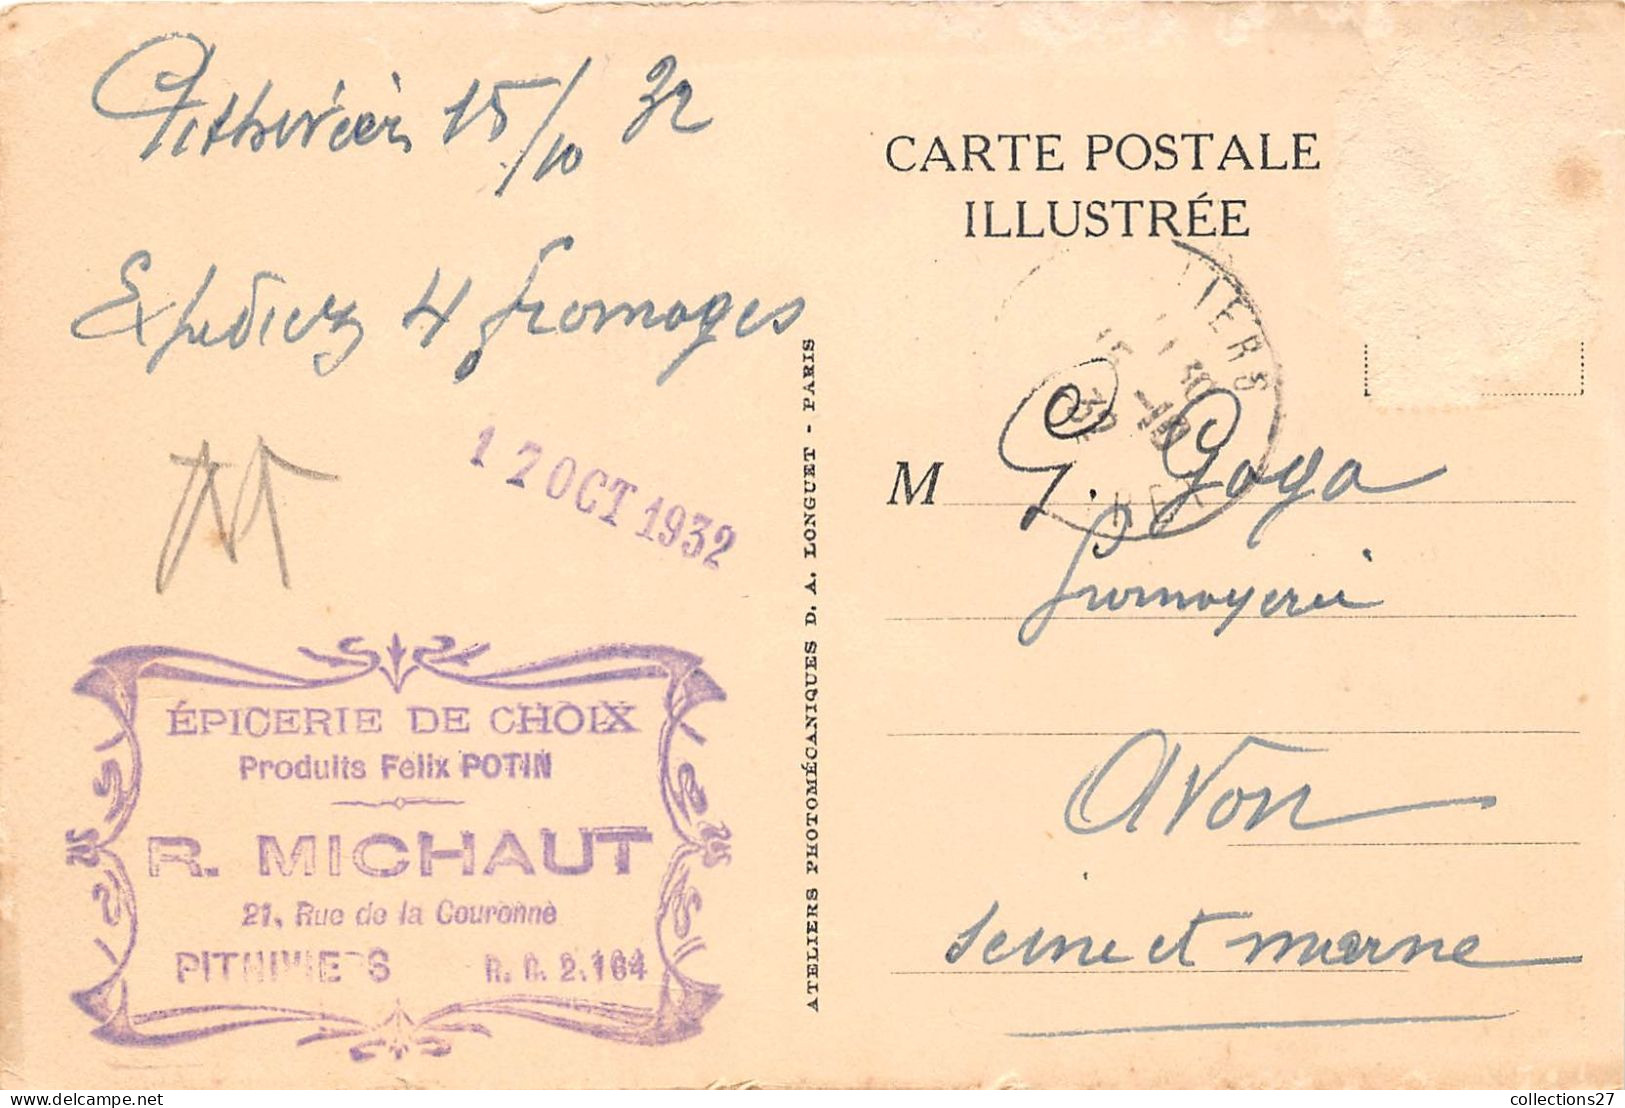 Pithiviers 15/10 32
Expediez 4 fromages
17 OCT 1932
ÉPICERIE DE CHOIX
Produits Felix POTIN
R. MICHAUT
21, Rue de la Couronne
PITHIVIERS R. C. 2.164
ATELIERS PHOTOMÉCANIQUES D. A. LONGUET - PARIS
CARTE POSTALE
ILLUSTRÉE
M G. Goga
fromagerie
Avon
Seine et marne
collections27